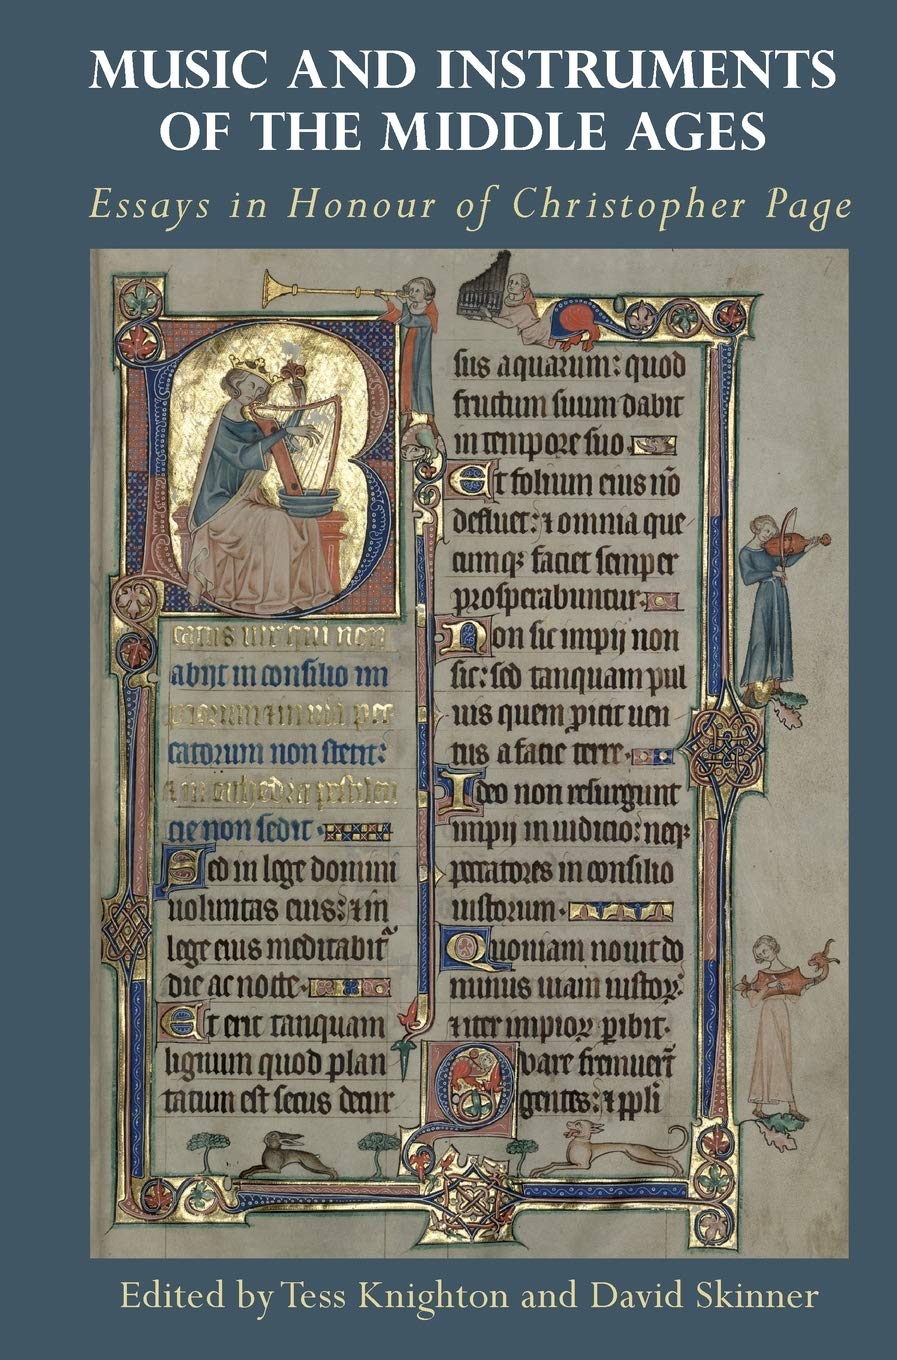 MUSIC AND INSTRUMENTS
OF THE MIDDLE AGES
Essays in Honour of Christopher Page
eatus uir qui non
abijt in consilio im
piorum ⁊ in uia pec
catorum non stetit:
⁊ in cathedra pestilen
cie non sedit
Sed in lege domini
uoluntas eius: ⁊ in
lege eius meditabit᷑
die ac nocte
Et erit tanquam
lignum quod plan
tatum est secus decur
sus aquarum: quod
fructum suum dabit
in tempore suo
Et folium eius nō
defluet: ⁊ omnia que
cumqꝫ faciet semper
prosperabuntur
Non sic impij non
sic: sed tanquam pul
uis quem ꝓicit uen
tus a facie terre
Ideo non resurgunt
impij in iudicio: neqꝫ
peccatores in consilio
iustorum
Quoniam nouit do
minus uiam iustoꝝ:
⁊ iter impioꝝ ꝑibit
Quare fremuer̄t
gentes: ⁊ ppl̄i
Edited by Tess Knighton and David Skinner